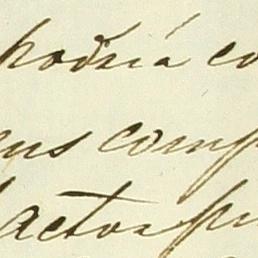 podria co
eus comp
actos pu